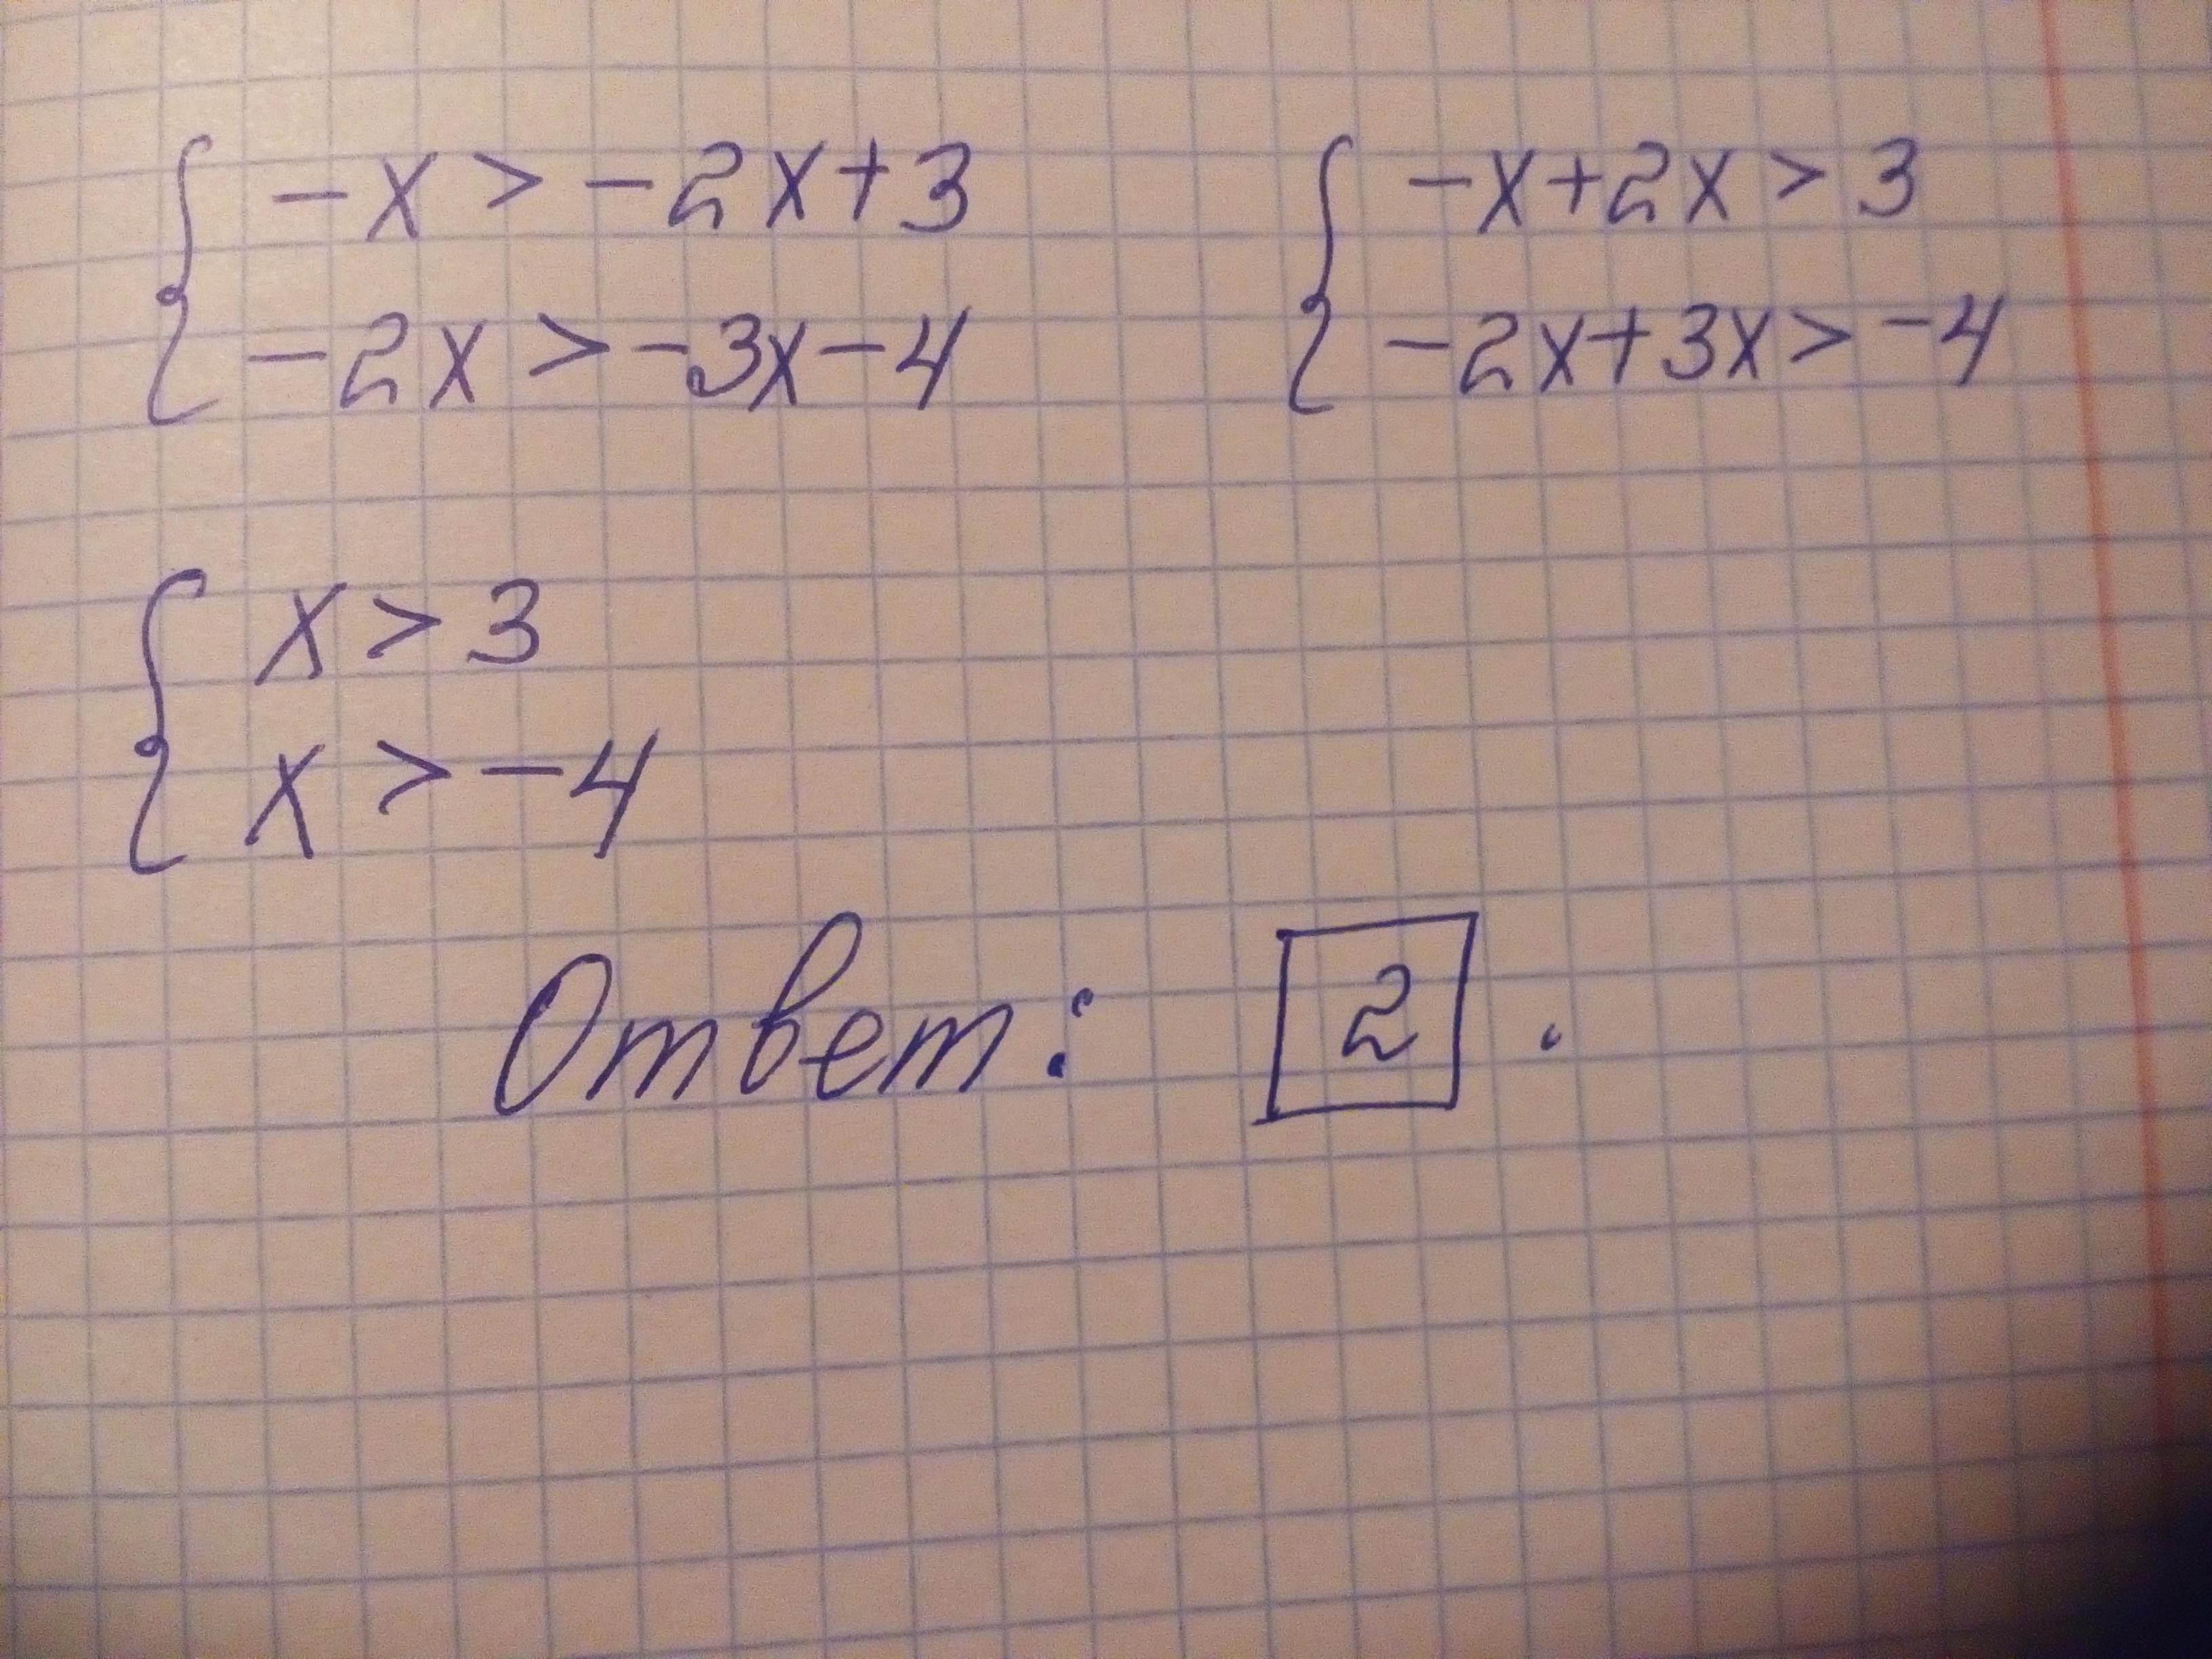 { -x > -2x+3      { -x+2x > 3
{ -2x > -3x-4      { -2x+3x > -4
{ x > 3
{ x > -4
Ответ: 2.